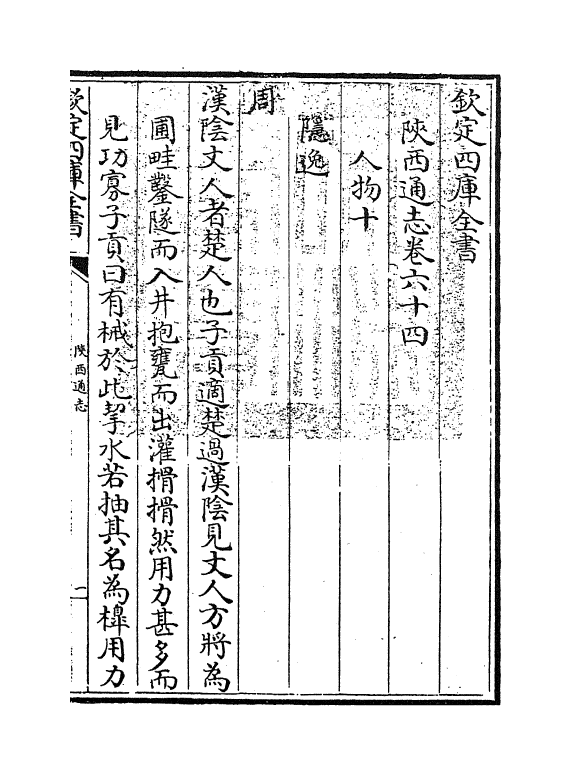 欽定四庫全書
陜西通志卷六十四
人物十
隱逸
周
漢陰丈人者楚人也子貢適楚過漢陰見丈人方將為
圃畦鑿隧而入井抱甕而出灌搰搰然用力甚多而
見功寡子貢曰有械於此挈水若抽其名為槹用力
欽定四庫全書
陜西通志
一